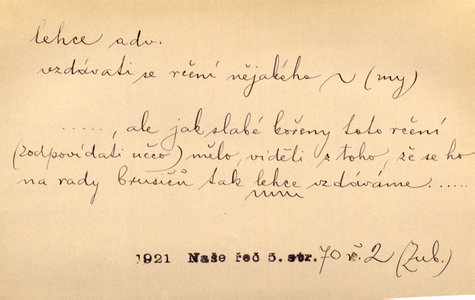 lehce adv.
vzdávati se rčení nějakého ~ (my)
....., ale jak slabé kořeny toto rčení
(zodpovídati něco) mělo, viděti z toho, že se ho
na rady brusičů tak lehce vzdáváme ......
1921 Naše řeč 5. str. 70 ř. 2 (Zub.)